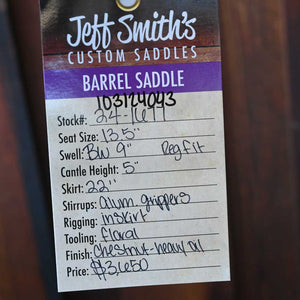 Jeff Smith's
CUSTOM SADDLES
BARREL SADDLE
103124043
Stock#: 24-1677
Seat Size: 13.5"
Swell: BW 9" Reg fit
Cantle Height: 5"
Skirt: 22"
Stirrups: alum. grippers
Rigging: inskirt
Tooling: floral
Finish: chestnut-heavy oil
Price: $3,650